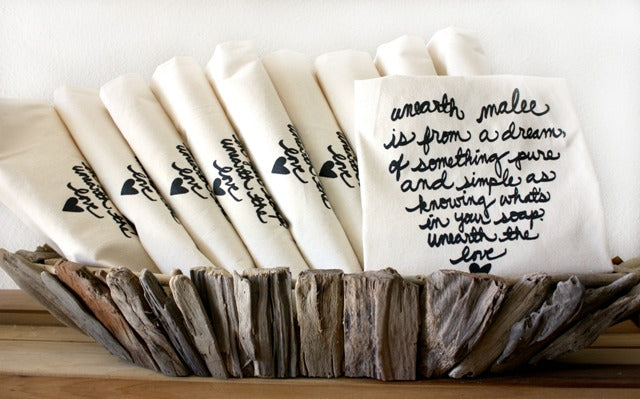 unearth the
love
unearth the
love
unearth the
love
unearth the
love
unearth malee
is from a dream,
of something pure
and simple as
knowing what's
in your soap.
unearth the
love